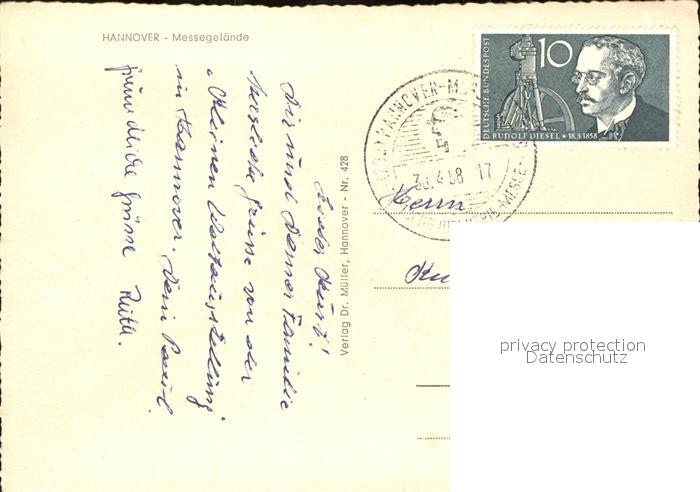 HANNOVER - Messegelände
Lieber Kurt!
Dir und Deiner Familie
herzliche Grüsse von der
"Kleinen Weltausstellung"
in Hannover. Dein Paul
freundliche Grüsse Ruth.
Verlag Dr. Müller, Hannover - Nr. 428
DEUTSCHE BUNDESPOST
10
RUDOLF DIESEL * 18.3.1858
HANNOVER-MESSE
30.4.58 17
Herrn
Ku
privacy protection
Datenschutz